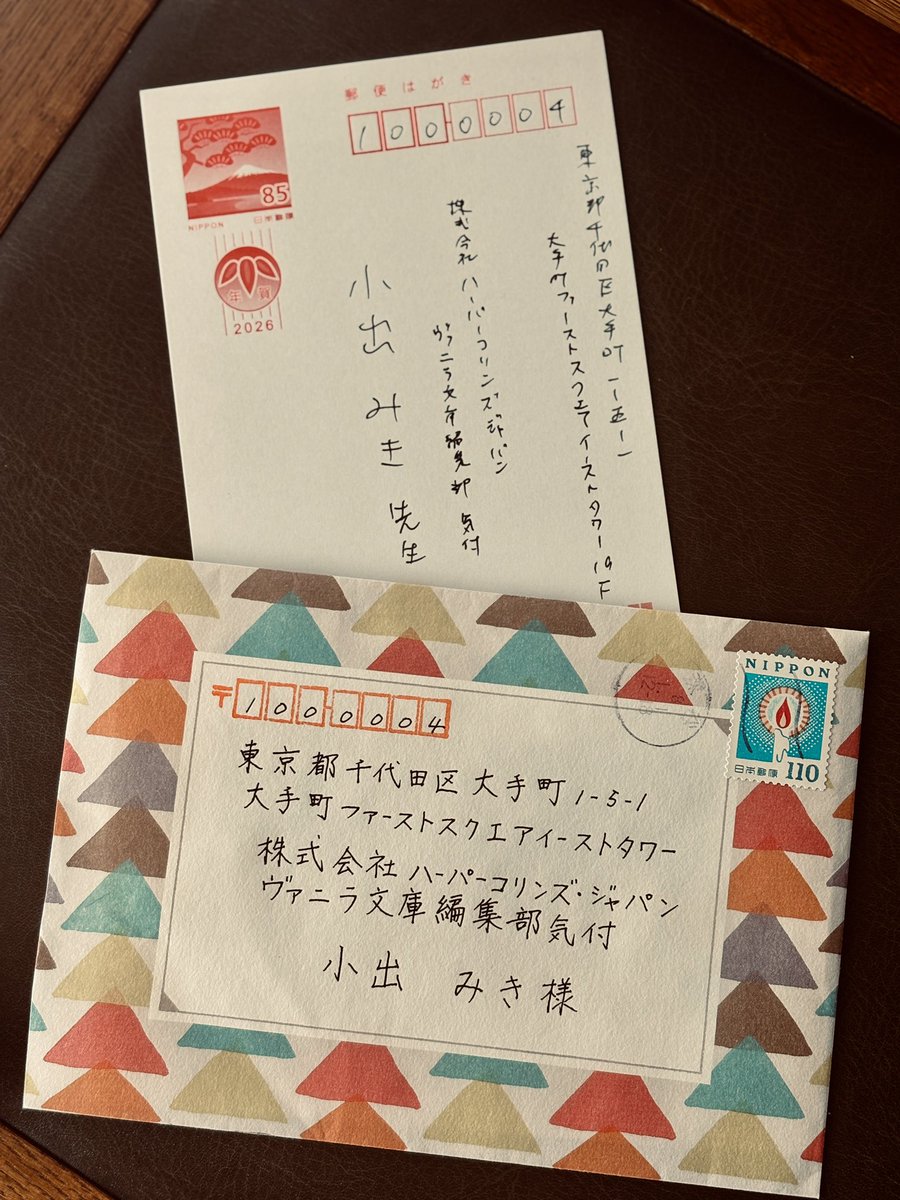 郵便はがき
1000004
85
NIPPON 日本郵便
年賀
2026
東京都千代田区大手町一ー五ー一
大手町ファーストスクエアイーストタワー19F
株式会社ハーパーコリンズジャパン
ヴァニラ文庫編集部 気付
小出みき先生
NIPPON
日本郵便 110
〒1000004
東京都千代田区大手町1-5-1
大手町ファーストスクエアイーストタワー
株式会社ハーパーコリンズ・ジャパン
ヴァニラ文庫編集部気付
小出 みき様